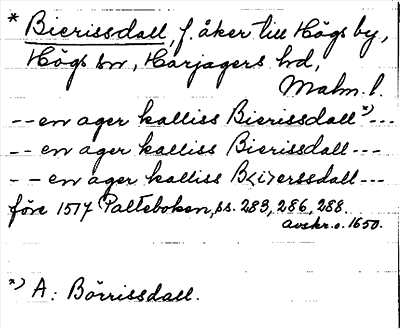 * Bierissdall, f. åker till Högs by,
Högs sn, Harjagers hd,
Malm. l.
-- en ager kalliss Bierissdall *) ---
-- en ager kalliss Bierissdall ---
-- en ager kalliss B<i>erssdall ---
före 1517 Palteboken, ss. 283, 286, 288.
avskr. o. 1650.
*) A: Börrissdall.